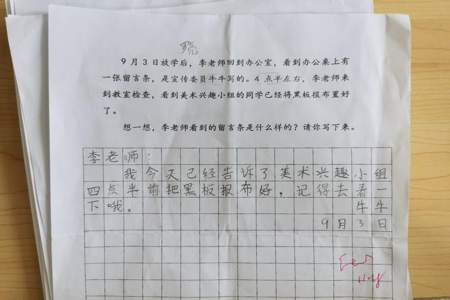 9月3日放学后，李老师回到办公室，看到办公桌上有
一张留言条，是宣传委员牛牛写的。4点半左右，李老师来
到教室检查，看到美术兴趣小组的同学已经将黑板报布置好
了。
想一想，李老师看到的留言条是什么样的？请你写下来。
李老师：
我今天已经告诉了美术兴趣小组
四点半前把黑板报布好，记得去看一
下哦。
牛牛
9月3日